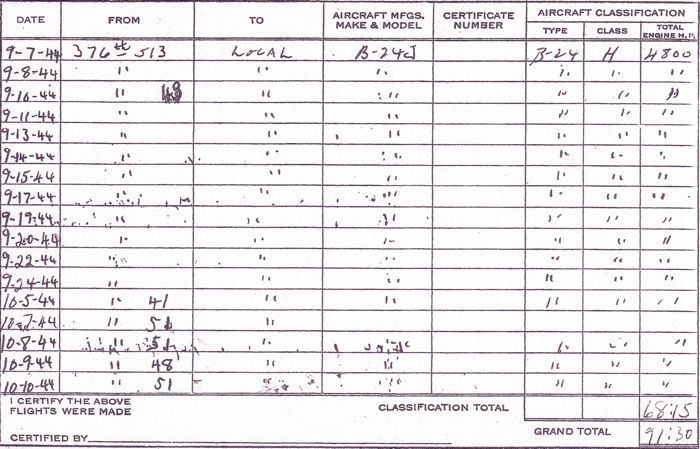 DATE FROM TO AIRCRAFT MFGS. MAKE & MODEL CERTIFICATE NUMBER AIRCRAFT CLASSIFICATION TYPE CLASS TOTAL ENGINE H.P.
9-7-44 376th 513 LOCAL B-24J B-24 H 4800
9-8-44 " " " " " "
9-10-44 " 48 " " " " "
9-11-44 " " " " " "
9-13-44 " " " " " "
9-14-44 " " " " " "
9-15-44 " " " " " "
9-17-44 " " " " " "
9-19-44 " " " " " "
9-20-44 " " " " " "
9-22-44 " " " " " "
9-24-44 " " " " " "
10-5-44 " 41 " " " " "
10-7-44 " 51 " "
10-8-44 " 51 " " " " "
10-9-44 " 48 " " " " "
10-10-44 " 51 " " " " "
I CERTIFY THE ABOVE FLIGHTS WERE MADE CLASSIFICATION TOTAL 68:15
CERTIFIED BY GRAND TOTAL 91:30